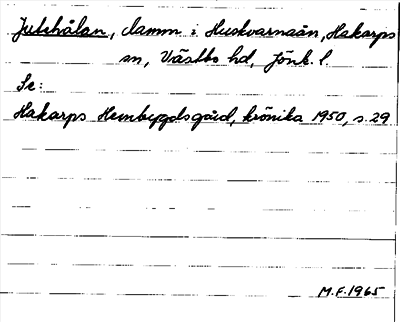 Julehålan, damm i Huskvarnaån, Hakarps
sn, Västbo hd, Jönk. l.
Se:
Hakarps Hembygdsgård, krönika 1950, s. 29
M.F. 1965